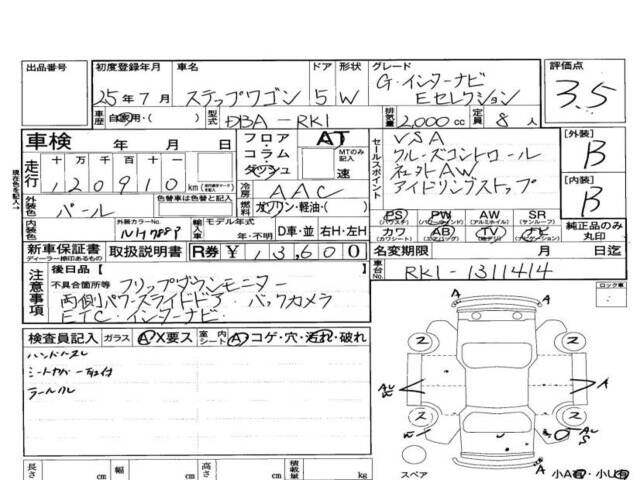 出品番号
初度登録年月 車名 ドア 形状 グレード 評価点
25年7月 ステップワゴン 5 W G・インターナビ Eセレクション 3.5
車歴 自家用・( ) 型式 DBA-RK1 排気量 2,000cc 定員 8人
車検 年 月 日
フロア・コラム・ダッシュ AT MTのみ記入 速
セールスポイント
VSA
クルーズコントロール
社外AW
アイドリングストップ
[外装] B
[内装] B
現在色を記入→
走行 十万千百十 120910km
冷房 AAC
外装色 パール 色替車は色替と記入 燃料 ガソリン・軽油・( )
PS PW AW SR
(パワステ) (パワーウインド) (アルミホイル) (サンルーフ)
カワ AB TV ナビ
(カワシート) (エアバッグ) (ナビゲーション)
純正品のみ丸印
内装色 外装カラーNo. NH788P 輸入車 モデル年式 年・不明 D車・並 右H・左H
新車保証書 取扱説明書 R券 ¥13,600
ディーラー捺印あるもの
名変期限 月 日迄
車台No. RK1-1311414
注意事項
後日品[ ]
不具合箇所等 フリップダウンモニター
両側パワースライドドア・バックカメラ
ETC・インターナビ
ロック車
検査員記入 ガラス A X要ス 室内シート A コゲ・穴・汚れ・破れ
ハンドルスレ
シートカバー取付
ラールクレ
A
A
ス ス
A A
ス ス
A
スペア
小A有・小U有
長さ cm 幅 cm 高さ cm 積載量 kg